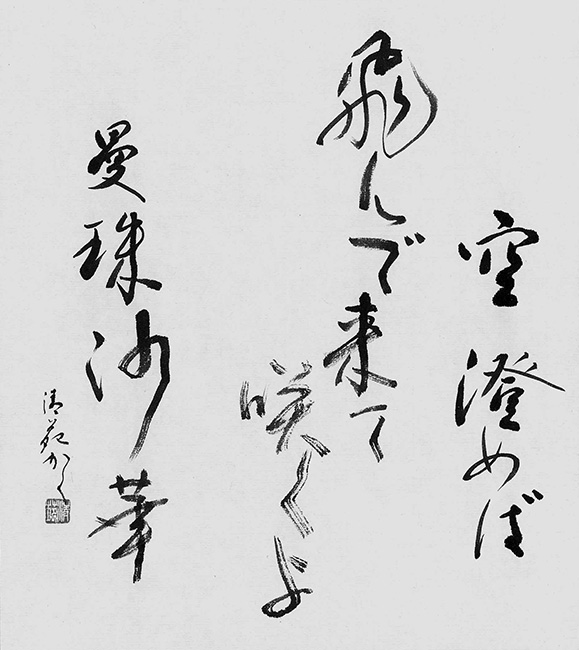 空澄めば
飛んで来て
咲くよ
曼珠沙華
清苑かく